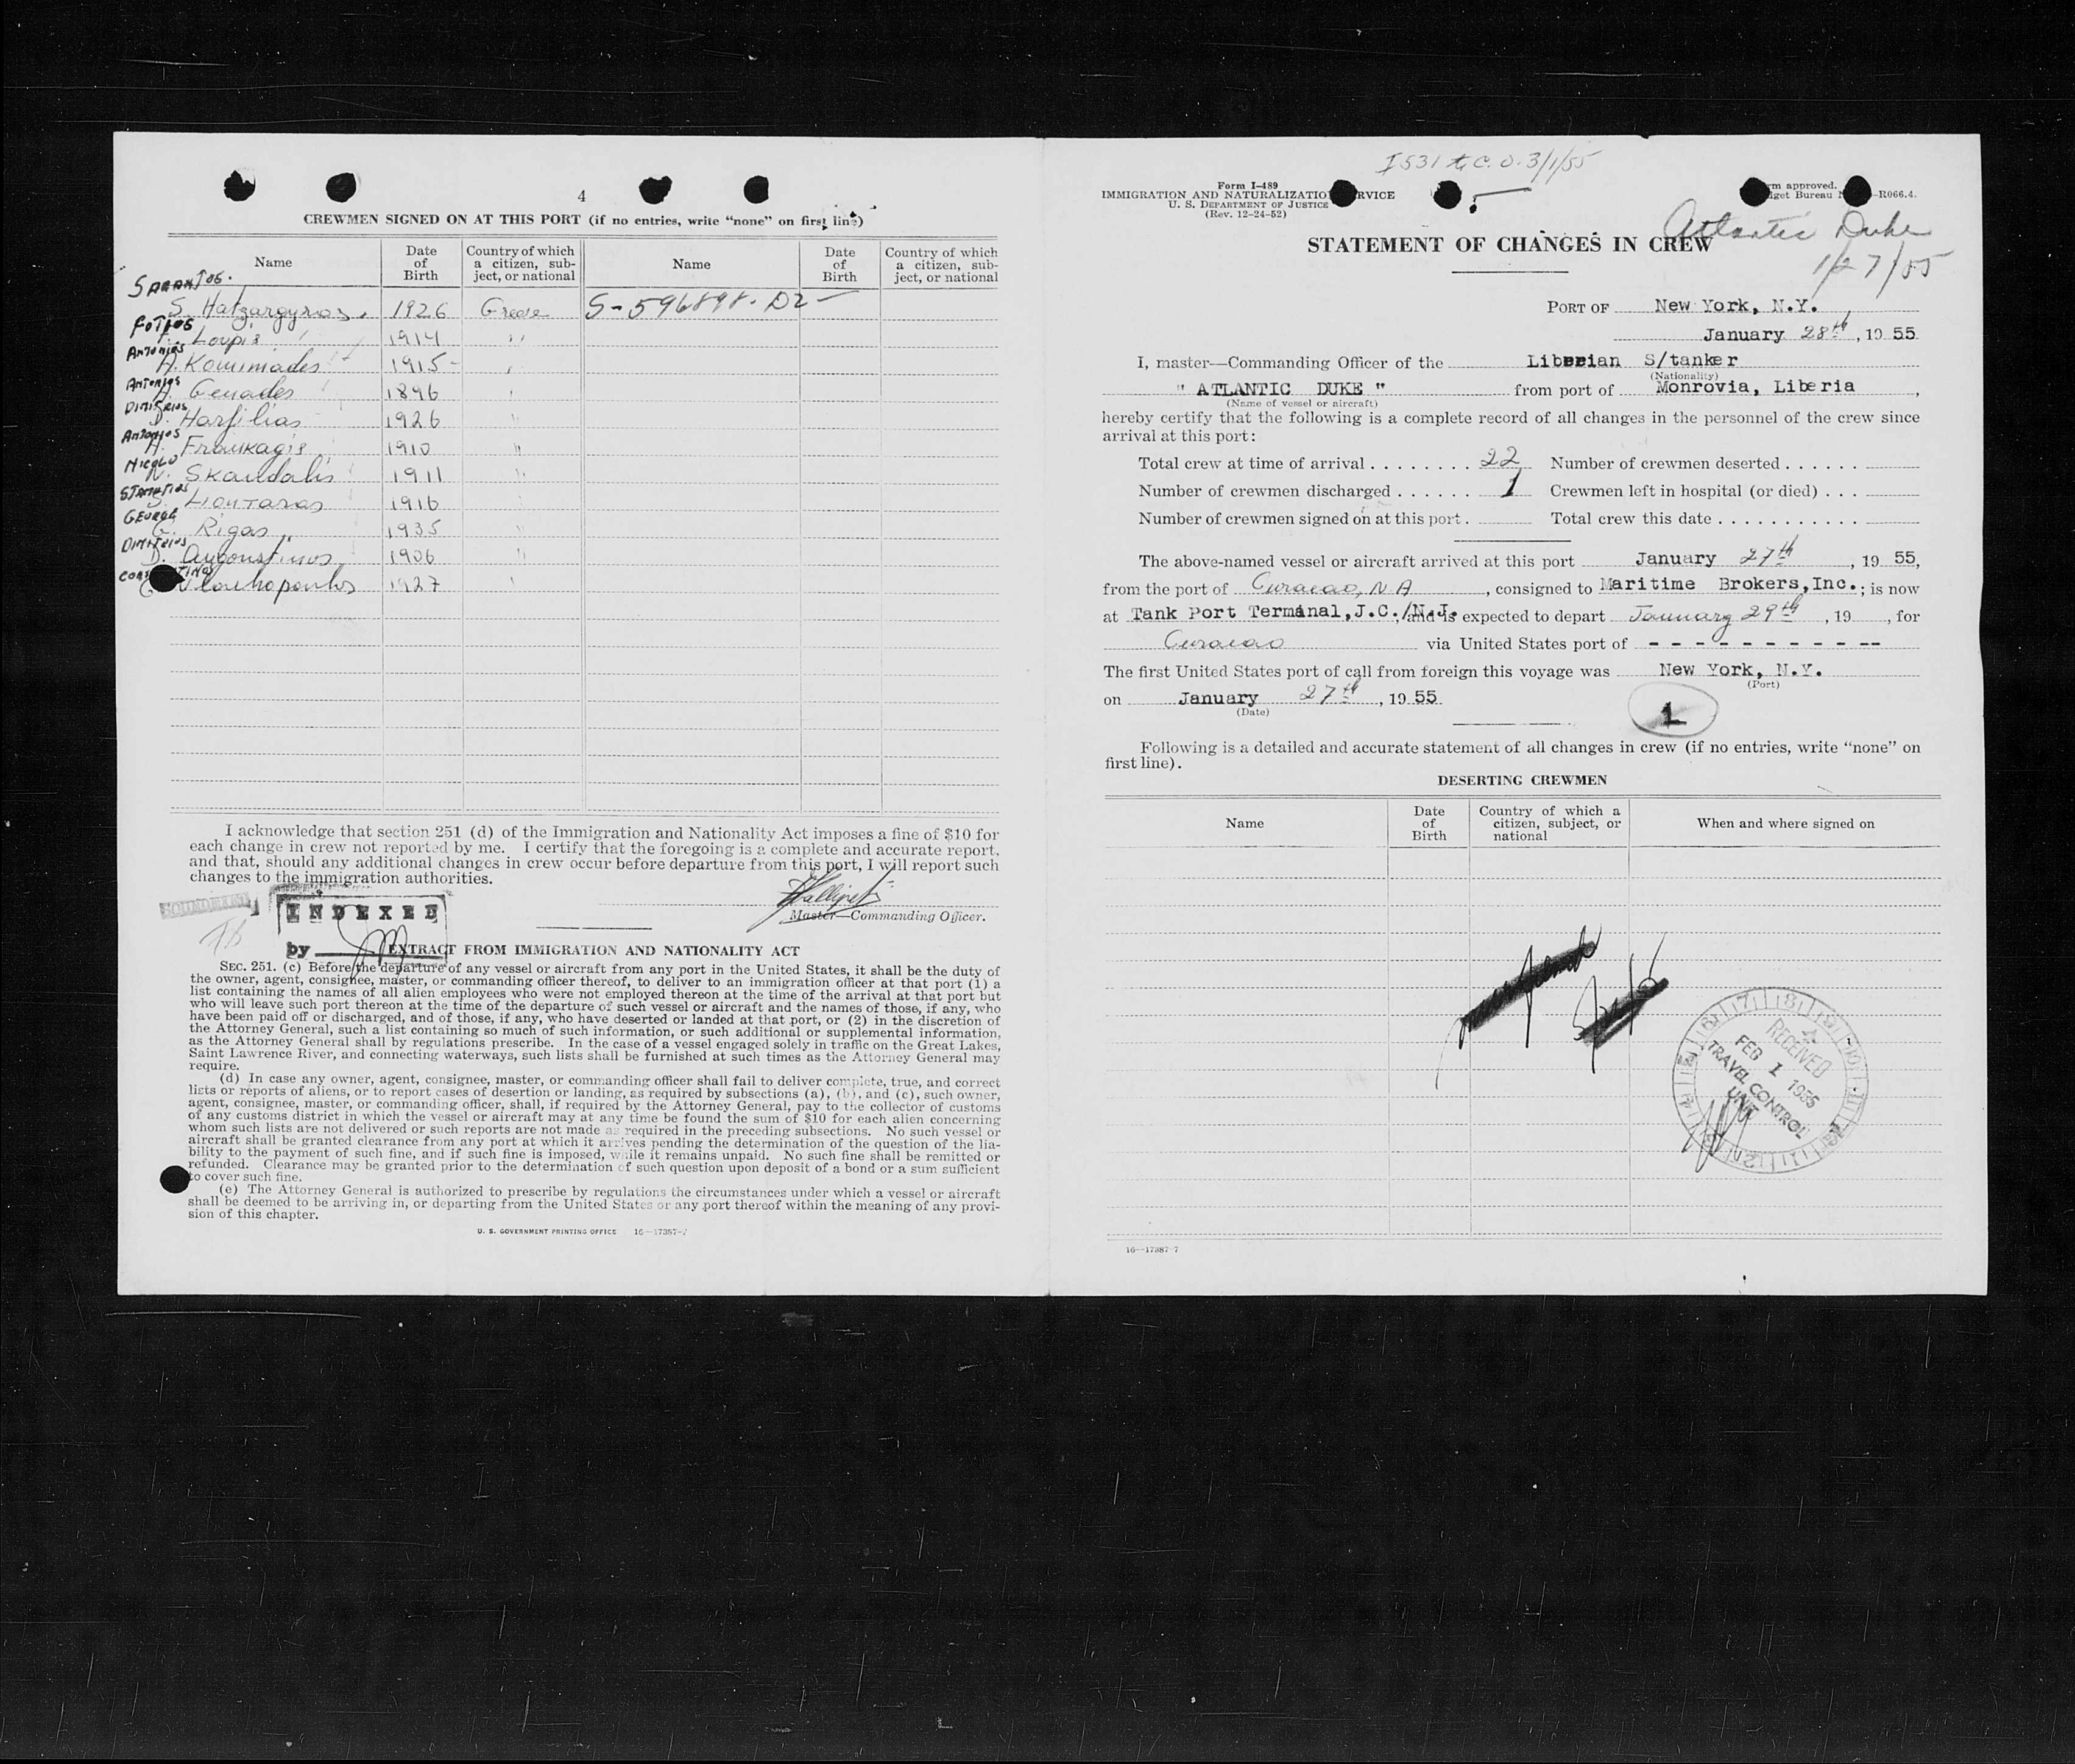 4
CREWMEN SIGNED ON AT THIS PORT (if no entries, write “none” on first line)
Name Date of Birth Country of which a citizen, subject, or national Name Date of Birth Country of which a citizen, subject, or national
SARANTOS.
S. Hatzargyros. 1926 Greece S-596898. D2 -
FOTIOS
Loupis 1914 "
Antonios
A. Kominiades 1915 - "
Antonios
A. Genades 1896 "
DIMITRIOS
Harfilias 1926
Antonios
A. Frankagis 1910 "
NICOLO
N. Skandalis 1911 "
STAMATIOS
S. Liontaras 1916
GEORGE
G. Rigas 1935 "
Dimitrios
D. Augoustinos 1906 "
1927 "
I acknowledge that section 251 (d) of the Immigration and Nationality Act imposes a fine of $10 for
each change in crew not reported by me. I certify that the foregoing is a complete and accurate report,
and that, should any additional changes in crew occur before departure from this port, I will report such
changes to the immigration authorities.
SOUNDEXED
INDEXED
Master—Commanding Officer.
by
EXTRACT FROM IMMIGRATION AND NATIONALITY ACT
SEC. 251. (c) Before the departure of any vessel or aircraft from any port in the United States, it shall be the duty of
the owner, agent, consignee, master, or commanding officer thereof, to deliver to an immigration officer at that port (1) a
list containing the names of all alien employees who were not employed thereon at the time of the arrival at that port but
who will leave such port thereon at the time of the departure of such vessel or aircraft and the names of those, if any, who
have been paid off or discharged, and of those, if any, who have deserted or landed at that port, or (2) in the discretion of
the Attorney General, such a list containing so much of such information, or such additional or supplemental information,
as the Attorney General shall by regulations prescribe. In the case of a vessel engaged solely in traffic on the Great Lakes,
Saint Lawrence River, and connecting waterways, such lists shall be furnished at such times as the Attorney General may
require.
(d) In case any owner, agent, consignee, master, or commanding officer shall fail to deliver complete, true, and correct
lists or reports of aliens, or to report cases of desertion or landing, as required by subsections (a), (b), and (c), such owner,
agent, consignee, master, or commanding officer, shall, if required by the Attorney General, pay to the collector of customs
of any customs district in which the vessel or aircraft may at any time be found the sum of $10 for each alien concerning
whom such lists are not delivered or such reports are not made as required in the preceding subsections. No such vessel or
aircraft shall be granted clearance from any port at which it arrives pending the determination of the question of the lia-
bility to the payment of such fine, and if such fine is imposed, while it remains unpaid. No such fine shall be remitted or
refunded. Clearance may be granted prior to the determination of such question upon deposit of a bond or a sum sufficient
to cover such fine.
(e) The Attorney General is authorized to prescribe by regulations the circumstances under which a vessel or aircraft
shall be deemed to be arriving in, or departing from the United States or any port thereof within the meaning of any provi-
sion of this chapter.
U. S. GOVERNMENT PRINTING OFFICE 16—17387-7
I 531 C. O. 3/1/55
Form I-489
IMMIGRATION AND NATURALIZATION SERVICE
U. S. DEPARTMENT OF JUSTICE
(Rev. 12-24-52)
approved.
Bureau -R066.4.
Atlantic Duke
1/27/55
STATEMENT OF CHANGES IN CREW
PORT OF New York, N.Y.
January 28th, 19 55
I, master—Commanding Officer of the Liberian S/tanker
(Nationality)
" ATLANTIC DUKE " from port of Monrovia, Liberia,
(Name of vessel or aircraft)
hereby certify that the following is a complete record of all changes in the personnel of the crew since
arrival at this port:
Total crew at time of arrival . . . . . . . . 22 Number of crewmen deserted . . . . . .
Number of crewmen discharged . . . . . . 1 Crewmen left in hospital (or died) . . .
Number of crewmen signed on at this port . Total crew this date . . . . . . . . . . .
The above-named vessel or aircraft arrived at this port January 27th, 19 55,
from the port of Curacao, N A, consigned to Maritime Brokers,Inc.; is now
at Tank Port Terminal,J.C./N.J. and is expected to depart January 29th, 19 , for
Curacao via United States port of - - - - - - - - - - --
The first United States port of call from foreign this voyage was New York, N.Y.
(Port)
on January 27th, 19 55
(Date)
1
Following is a detailed and accurate statement of all changes in crew (if no entries, write “none” on
first line).
DESERTING CREWMEN
Name Date of Birth Country of which a citizen, subject, or national When and where signed on
RECEIVED
FEB 1 1955
TRAVEL CONTROL
UNIT
16—17387-7